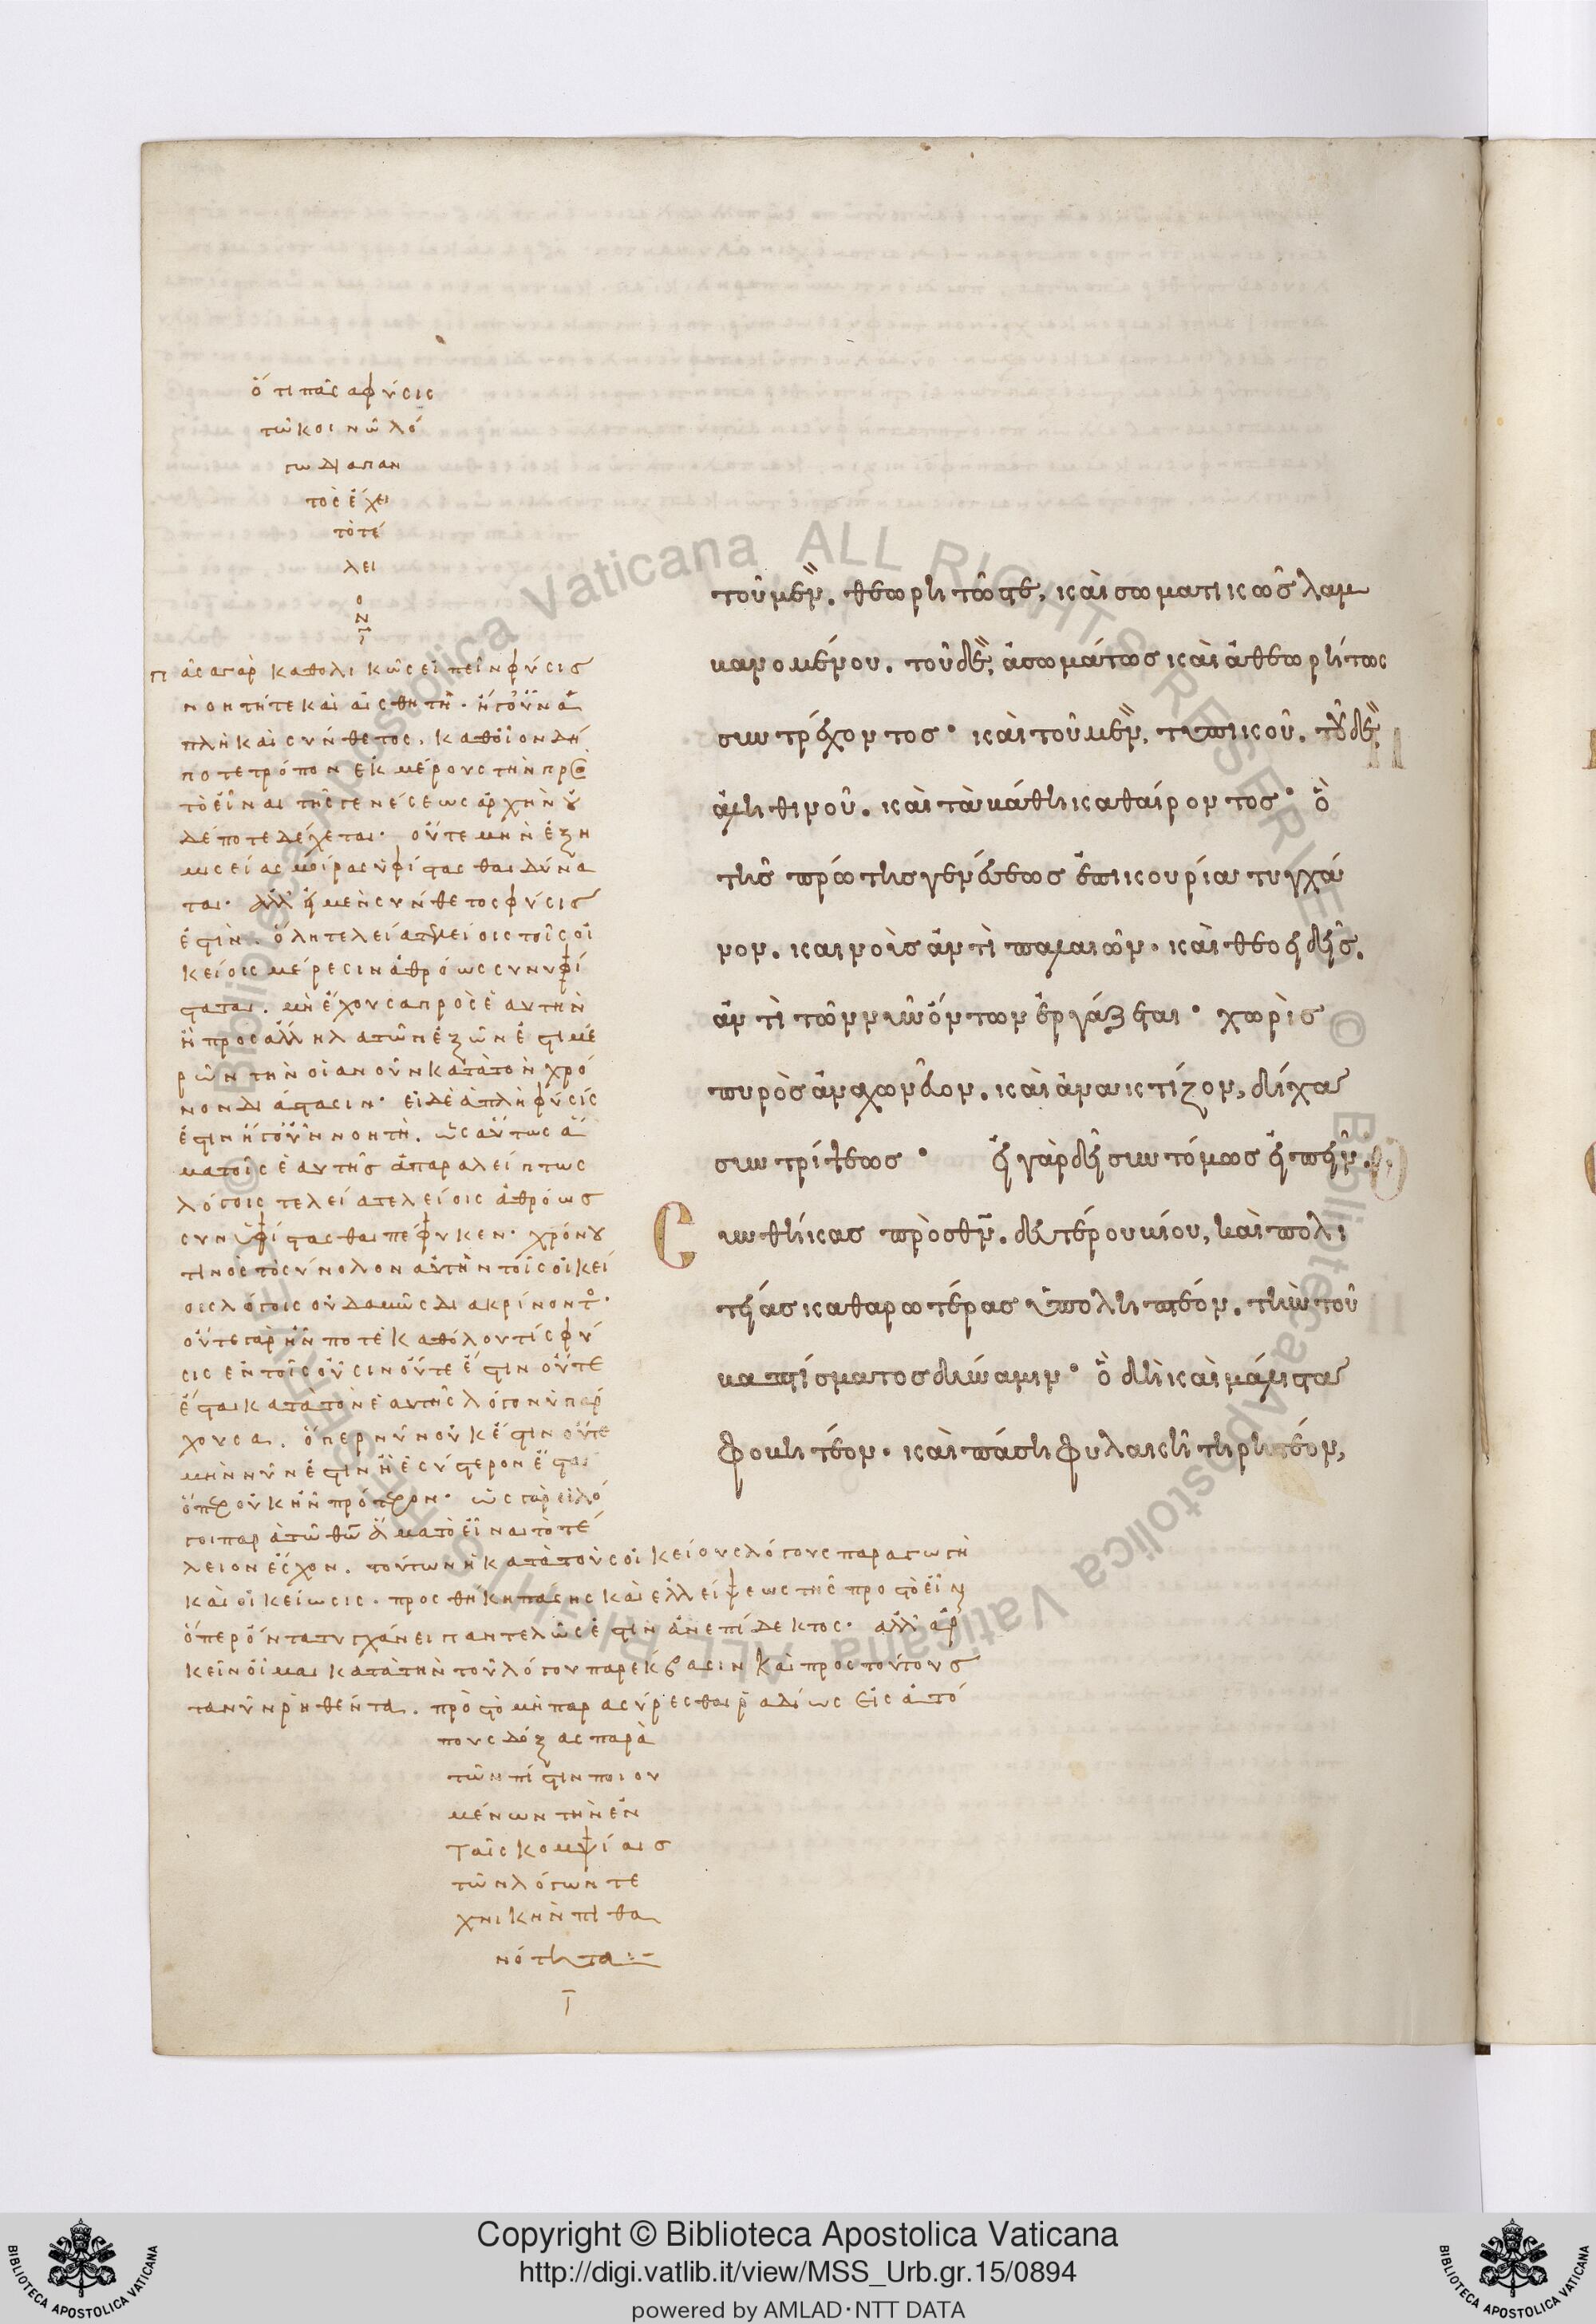 ὅτι πᾶσα φύσις
τῶ κοινῶ λό
γω διαπαν
τὸς ἔχει
τὸ τέ
λει
ο
ν
πᾶσα γὰρ καθολικῶς εἰπεῖν φύσις
νοητή τε καὶ αἰσθητὴ· ἤγουν ἁ
πλῆ καὶ σύνθετος. καθ' οἷον δή
ποτε τρόπον ἐκ μέρους τὴν πρὸς
τὸ εἶναι τῆς γενέσεως ἀρχὴν οὐ
δέποτε δέχεται· οὔτε μὴν ἐξ ἡ
μισείας μοίρας ὑφίστασθαι δύνα
ται· ἀλλ' εἰ μὲν σύνθετος φύσις
ἐστὶν. ὅλη τελεία τελείοις τοῖς οἰ
κείοις μέρεσιν ἀθρόως συνυφί
σταται. μὴ ἔχουσα πρὸς ἑαυτὴν
ἢ πρὸς ἄλληλα τῶν ἐξ ὧν ἐστι με
ρῶν τὴν οἱανοῦν κατὰ τὸν χρό
νον διάστασιν· εἰ δὲ ἁπλῆ φύσις
ἐστὶν ἤγουν νοητὴ. ὡσαύτως ἅ
μα τοῖς ἑαυτῆς ἀπαραλείπτως
λόγοις τελεία τελείοις ἀθρόως
συνυφίστασθαι πέφυκεν· χρόνου
τινὸς τὸ σύνολον αὐτὴν τοῖς οἰκεί
οις λόγοις οὐδαμῶς διακρίνοντος·
οὔτε γὰρ ἦν ποτὲ καθόλου τίς φύ
σις ἐν τοῖς οὖσιν οὔτε ἔστιν οὔτε
ἔσται κατὰ τὸν ἑαυτῆς λόγον ὑπάρ
χουσα. ὅπερ νῦν οὐκ ἔστιν οὔτε
μὴν νῦν ἐστὶν ἢ ἐς ὕστερον ἔσται
ὅπερ οὐκ ἦν πρότερον· ὡς γὰρ οἱ λό
γοι παρὰ τῶ θεῶ ἅμα τὸ εἶναι τὸ τέ
λειον ἔσχον. τούτων ἡ κατὰ τοὺς οἰκείους λόγους παραγωγὴ
καὶ οἰκείωσις. προσθήκης πάσης καὶ ἐλλείψεως τῆς πρὸς τὸ εἶναι
ὅπερ ὄντα τυγχάνει παντελῶς ἐστὶν ἀνεπίδεκτος· ἀλλ' ἀρ
κεῖν οἶμαι κατὰ τὴν τοῦ λόγου παρέκβασιν καὶ πρὸς τούτους
τὰ νῦν ῥηθέντα. πρὸς τὸ μὴ παρασύρεσθαι ῥαδίως εἰς ἀτό
πους δόξας παρὰ
τῶν πίστιν ποιου
μένων τὴν ἐν
ταῖς κομψίαις
τῶν λόγων τε
χνικὴν πιθα
νότητα:-
τοῦ μὲν. θεωρητῶς τε, καὶ σωματικῶς λαμ
βανομένου. τοῦ δὲ, ἀσωμάτως καὶ ἀθεωρήτως
συντρέχοντος· καὶ τοῦ μὲν, τυπικοῦ. τοῦ δὲ
ἀληθινοῦ. καὶ τὰ βάθη καθαίροντος· ὃ
τῆς πρώτης γενέσεως ἐπικουρία τυγχά
νον. καινοὺς ἀντὶ παλαιῶν. καὶ θεοειδεῖς.
ἀντὶ τῶν νῦν ὄντων ἐργάζεται· χωρὶς
πυρὸς ἀναχωνεῦον. καὶ ἀνακτίζον, δίχα
συντρίψεως· εἰ γὰρ δεῖ συντόμως εἰπεῖν.
συνθήκας πρὸς θεὸν. δευτέρου βίου, καὶ πολι
τείας καθαρωτέρας ὑποληπτέον. τὴν τοῦ
βαπτίσματος δύναμιν· ὃ δὴ καὶ μάλιστα
φοβητέον. καὶ πάση φυλακῆ τηρητέον,
Copyright © Biblioteca Apostolica Vaticana
http://digi.vatlib.it/view/MSS_Urb.gr.15/0894
powered by AMLAD·NTT DATA